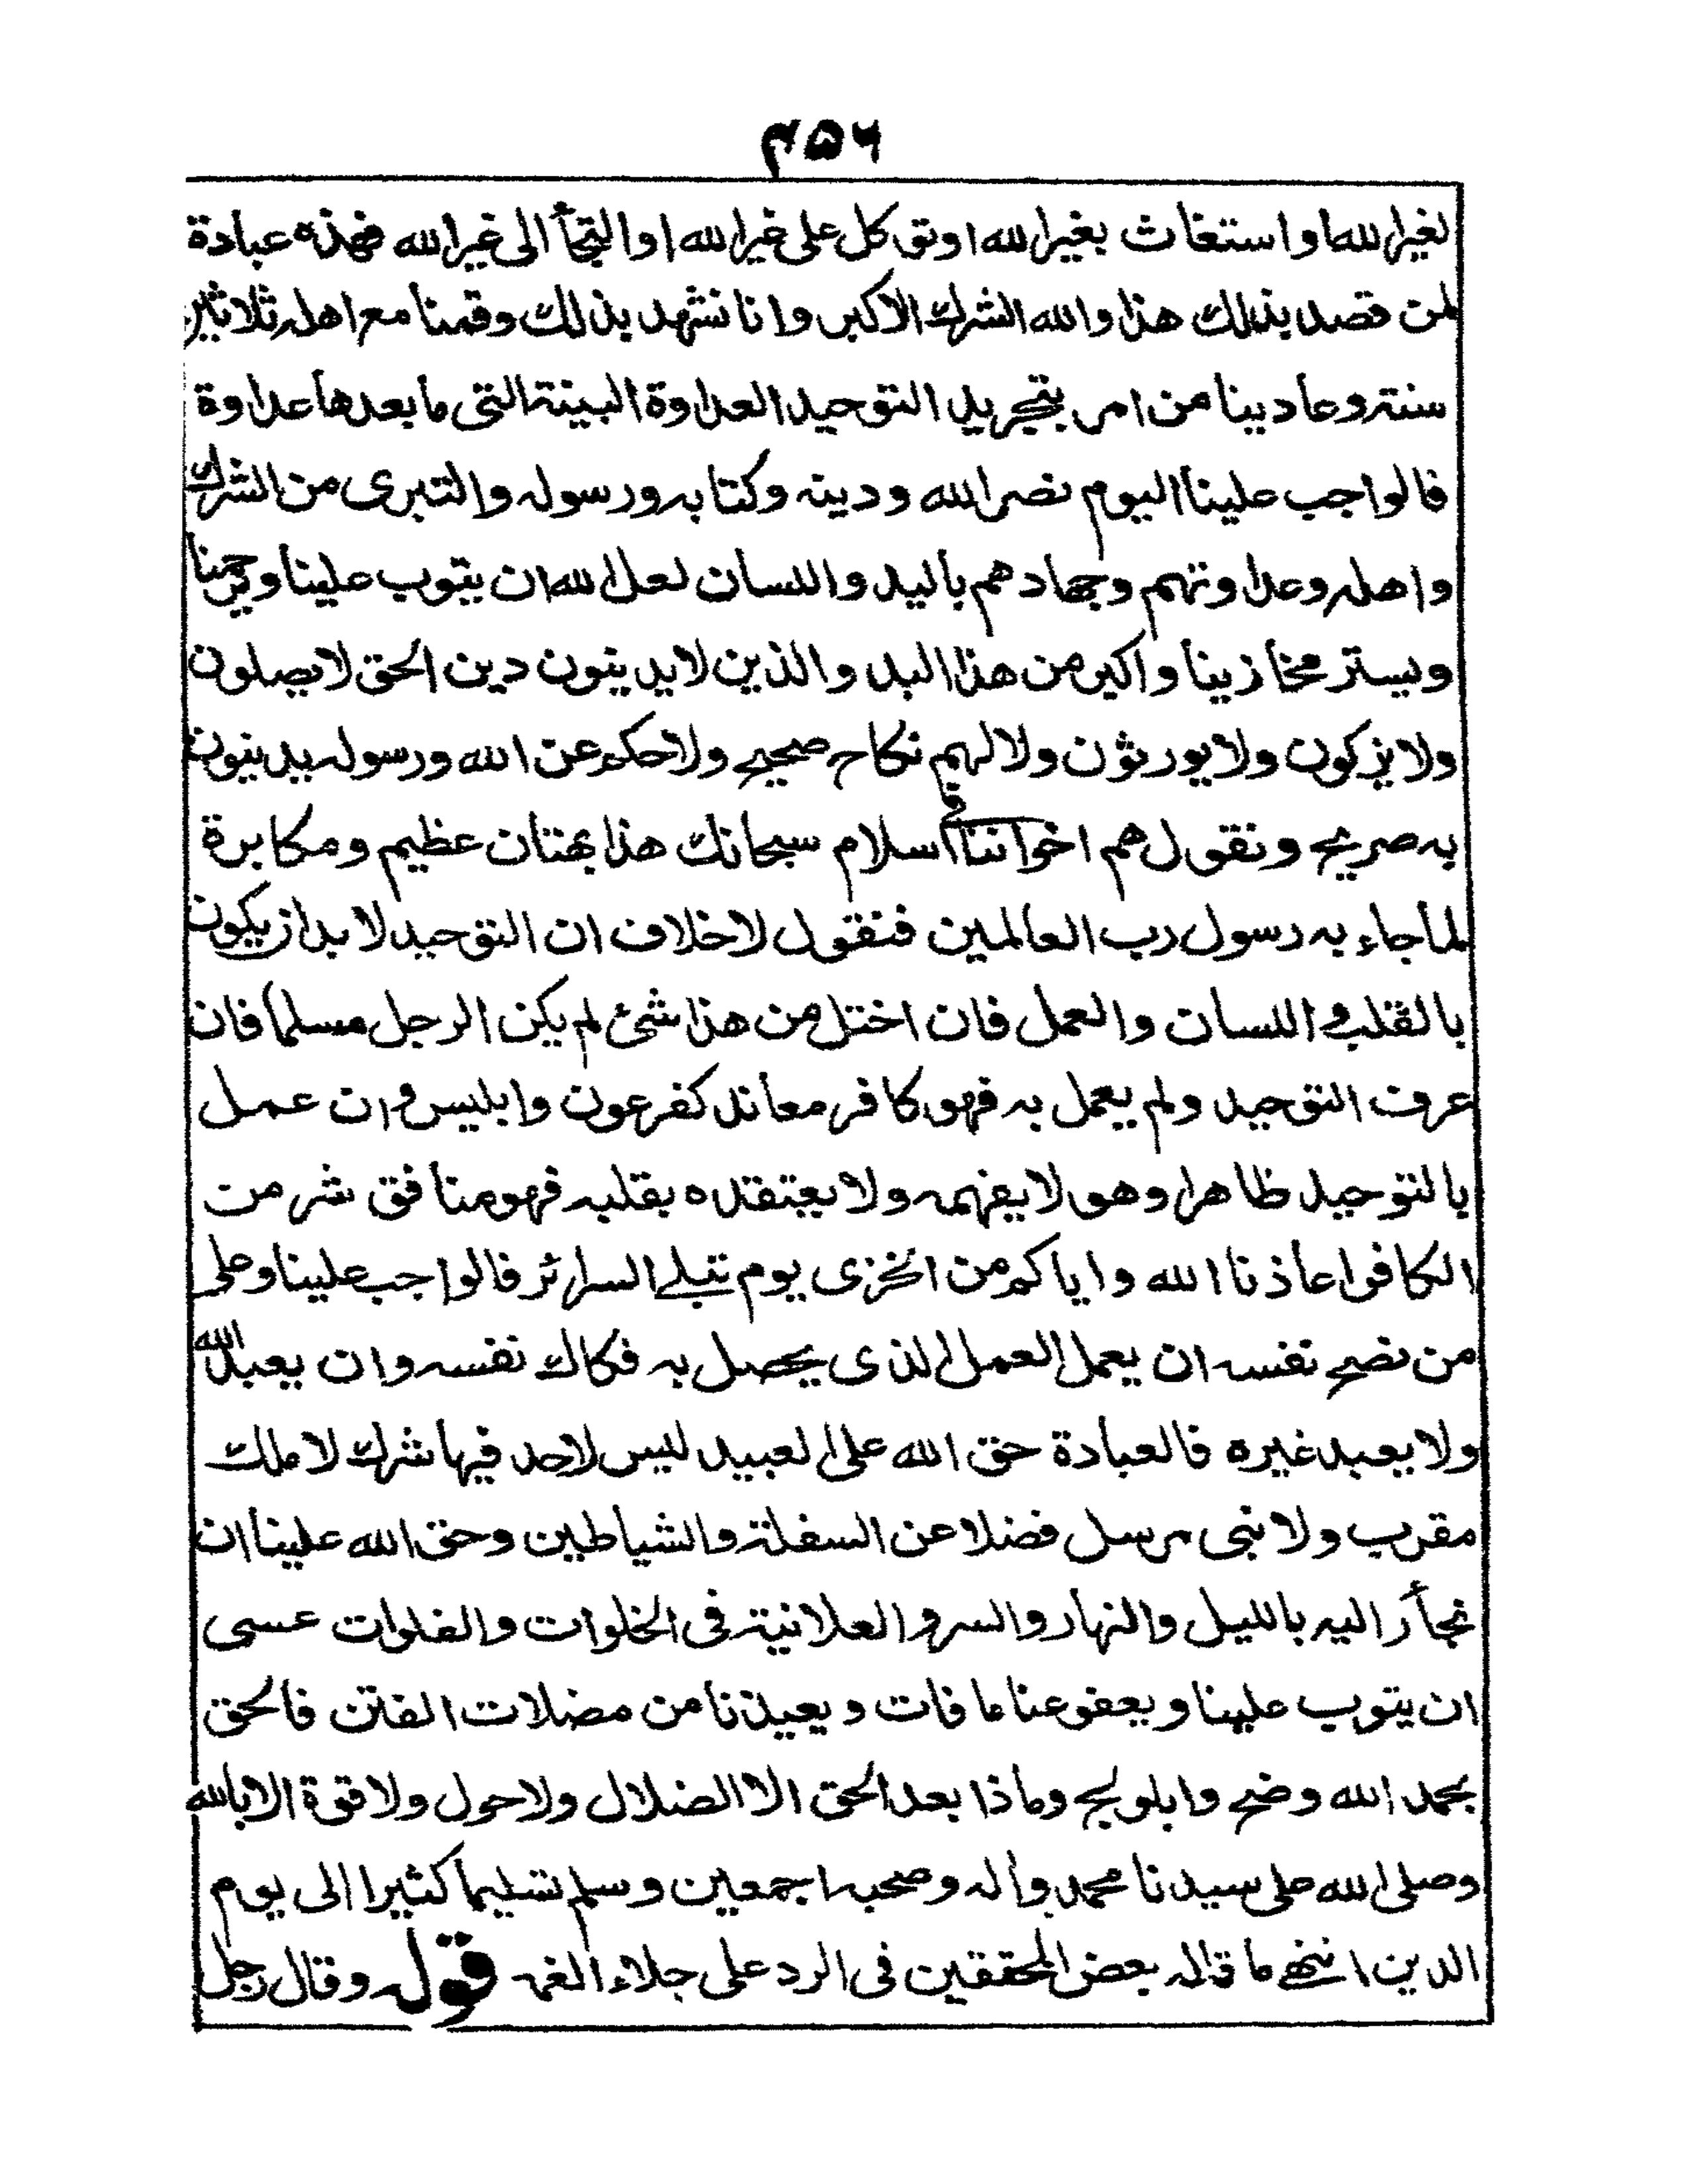 ۴۵۶
لغير الله او استغاث بغير الله او توكل على غير الله او التجأ الى غير الله فهذه عبادة
لمن قصد بذلك هذا والله الشرك الاكبر وانا نشهد بذلك وقمنا مع اهله ثلاثين
سنة وعادينا من امر بتجريد التوحيد العداوة البينة التى ما بعدها عداوة
فالواجب علينا اليوم نصر الله ودينه وكتابه ورسوله والتبرى من الشرك
واهله وعداوتهم وجهادهم باليد واللسان لعل الله ان يتوب علينا ويرحمنا
ويستر مخازينا واكبر من هذا البدو الذين لا يدينون دين الحق لا يصلون
ولا يزكون ولا يورثون ولا لهم نكاح صحيح ولا حكم عن الله ورسوله يدينون
به صريح ونقول هم اخواننا فى اسلام سبحانك هذا بهتان عظيم ومكابرة
لما جاء به رسول رب العالمين فنقول لا خلاف ان التوحيد لا بد ان يكون
بالقلب واللسان والعمل فان اختل من هذا شئ لم يكن الرجل مسلما فان
عرف التوحيد ولم يعمل به فهو كافر معاند كفرعون وابليس وان عمل
بالتوحيد ظاهرا وهو لا يفهمه ولا يعتقده بقلبه فهو منافق شر من
الكافر اعاذنا الله واياكم من الخزى يوم تبلى السرائر فالواجب علينا وعلى
من نصح نفسه ان يعمل العمل الذى يحصل به فكاك نفسه وان يعبد الله
ولا يعبد غيره فالعبادة حق الله على العبيد ليس لاحد فيها شرك لا ملك
مقرب ولا نبى مرسل فضلا عن السفلة والشياطين وحق الله علينا ان
نجأر اليه بالليل والنهار والسر والعلانية فى الخلوات والفلوات عسى
ان يتوب علينا ويعفو عنا ما فات ويعيذنا من مضلات الفتن فالحق
بحمد الله وضح وابلولج وماذا بعد الحق الا الضلال ولا حول ولا قوة الا بالله
وصلى الله على سيدنا محمد واله وصحبه اجمعين وسلم تسليما كثيرا الى يوم
الدين انتهى ما قاله بعض المحققين فى الرد على جلاء الغمه قوله وقال رجل